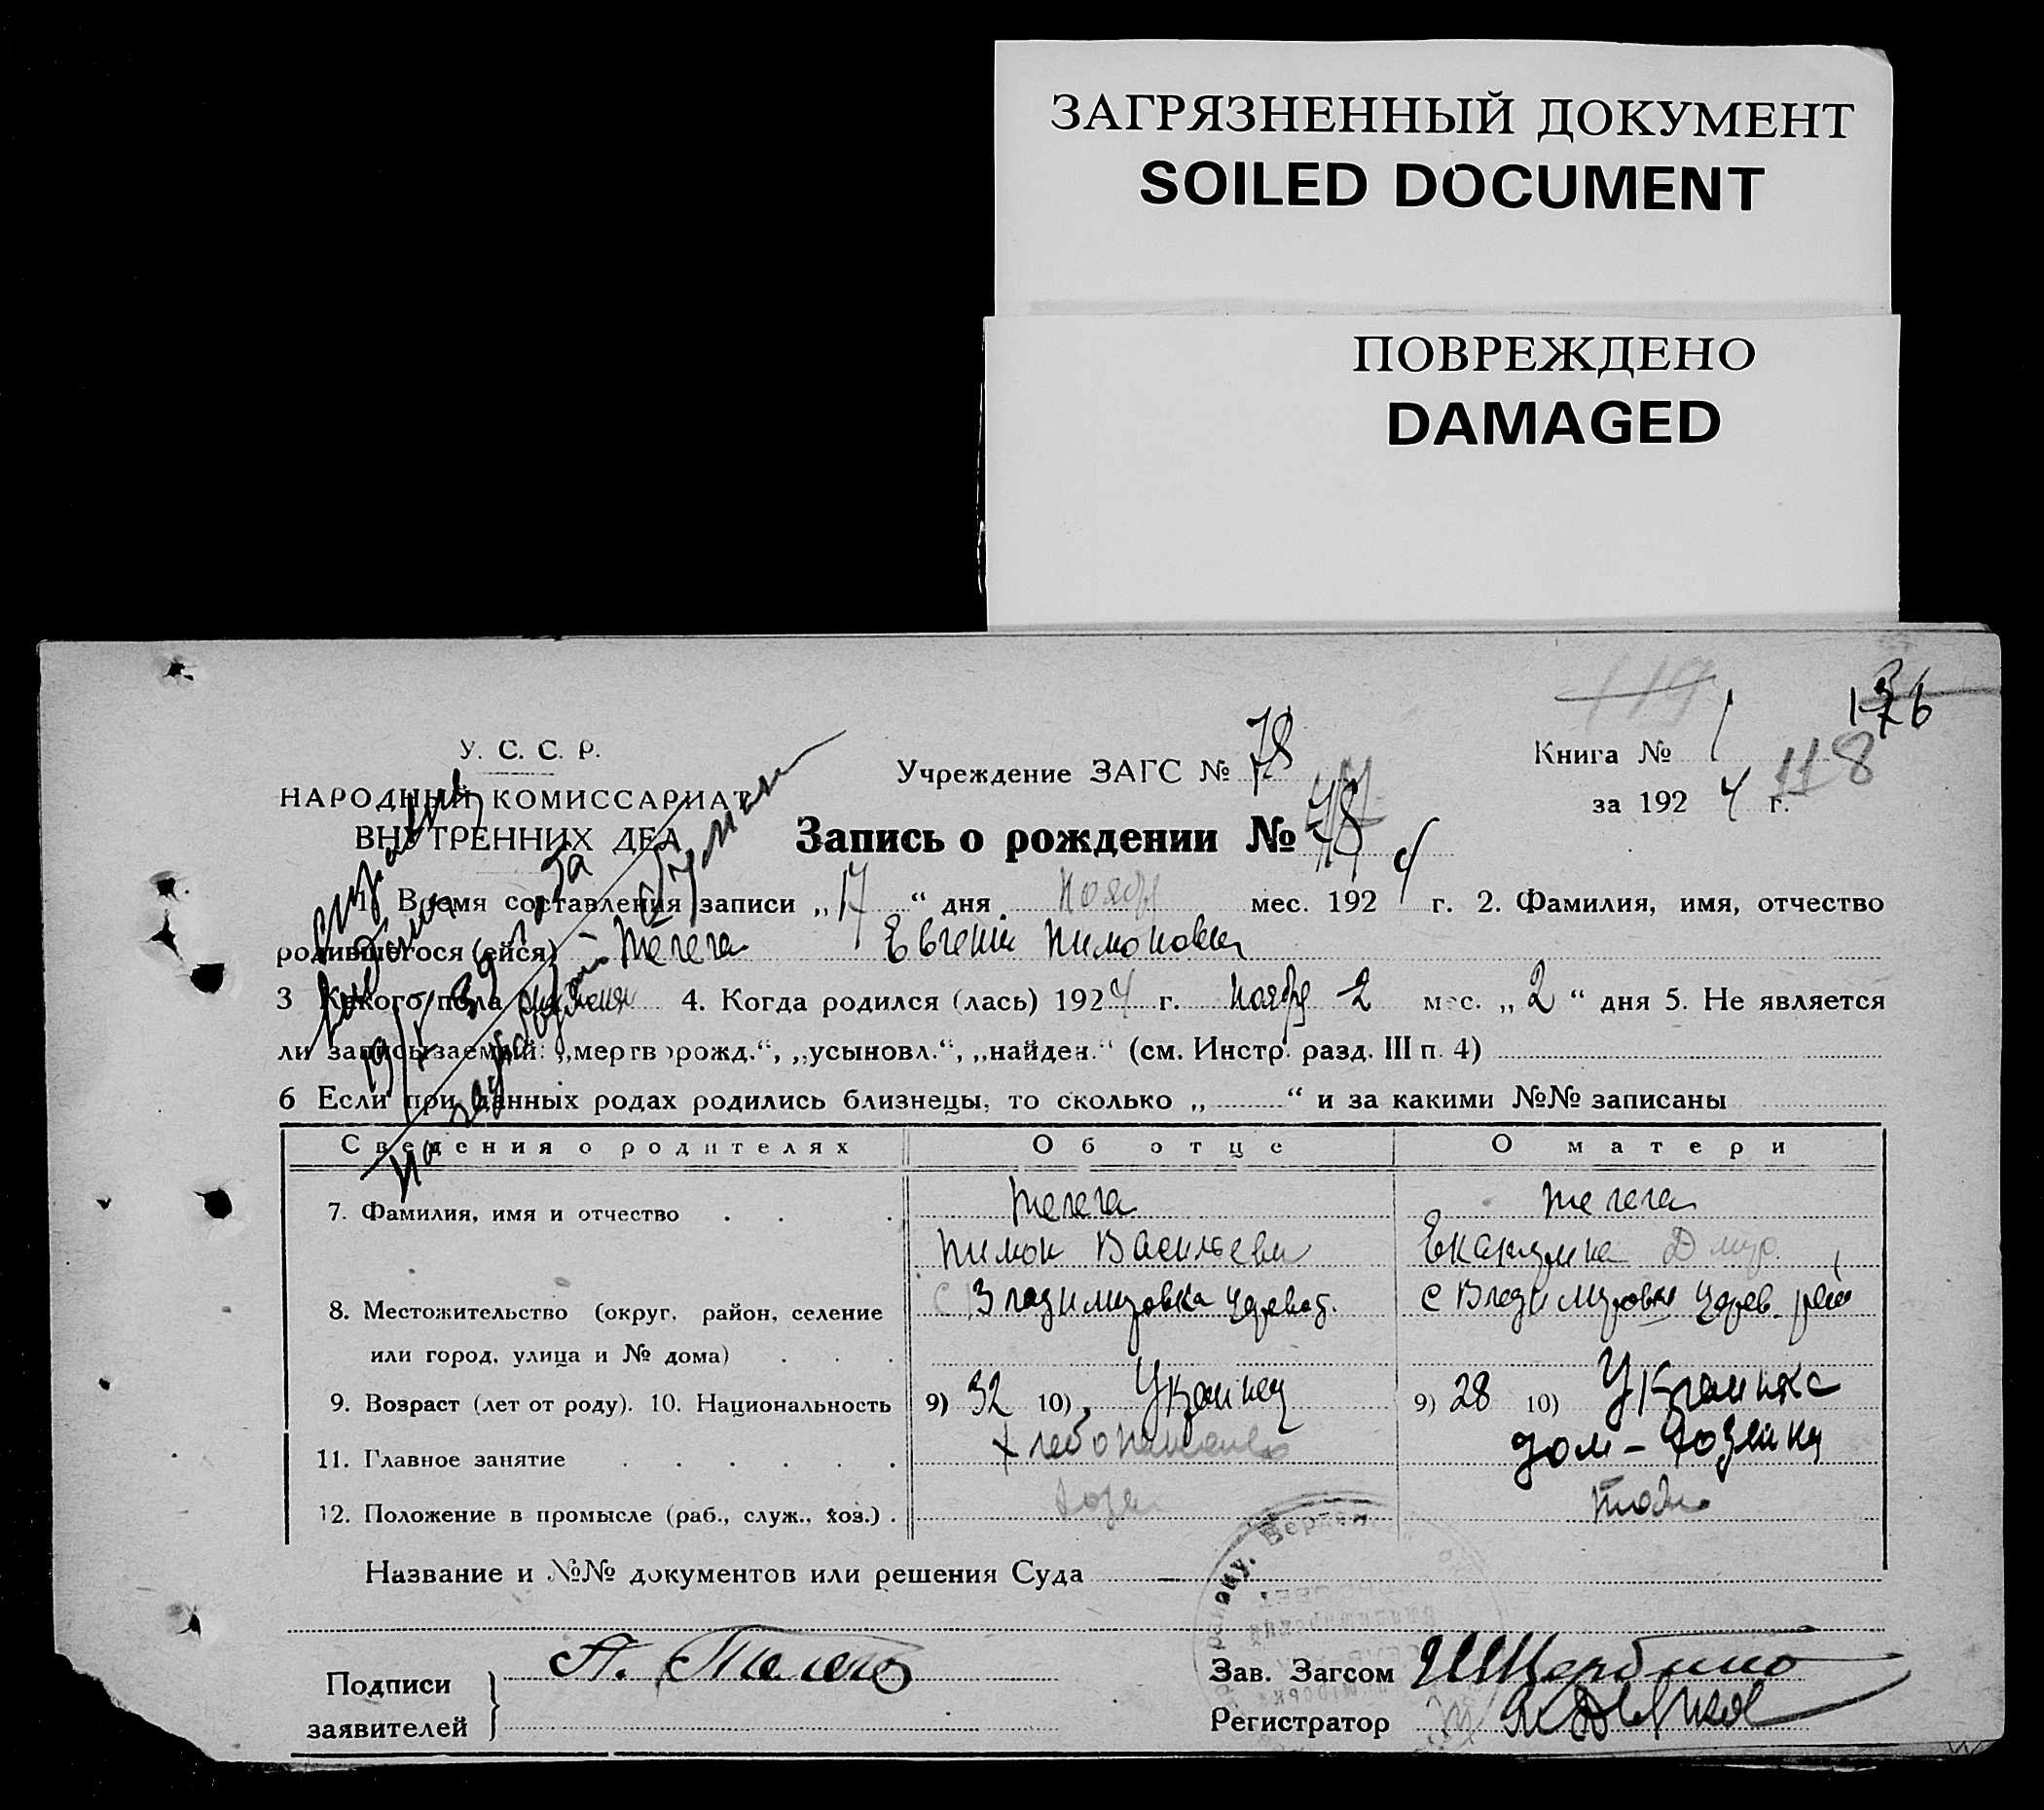 ЗАГРЯЗНЕННЫЙ ДОКУМЕНТ
SOILED DOCUMENT
ПОВРЕЖДЕНО
DAMAGED
119
136
У. С. С. Р.
НАРОДНЫЙ КОМИССАРИАТ
ВНУТРЕННИХ ДЕЛ
Учреждение ЗАГС № 78
Книга № 1
118
за 192 4 г.
Запись о рождении № 78
1. Время составления записи „17“ дня Ноябр мес. 192 4 г. 2. Фамилия, имя, отчество
родившегося (ейся) Телега Евгений Тимоновен
3 Какого пола 4. Когда родился (лась) 1924 г. Ноябр 2 мес. „2“ дня 5. Не является
ли записываемый: „мертворожд.“, „усыновл.“, „найден.“ (см. Инстр. разд. III п. 4)
6 Если при данных родах родились близнецы, то сколько „ “ и за какими №№ записаны
Сведения о родителях Об отце О матери
7. Фамилия, имя и отчество Телега Телега
Тимон Васильеви Екатерина Дмир.
8. Местожительство (округ, район, селение С Владимировка с Владимировки рай
или город, улица и № дома)
9. Возраст (лет от роду). 10. Национальность 9) 32 10) Украинец 9) 28 10) Украинка
11. Главное занятие Хлебопашено дом-хозяйка
12. Положение в промысле (раб., служ., хоз.) хозя тоже
Название и №№ документов или решения Суда
Подписи
заявителей
Зав. Загсом
Регистратор